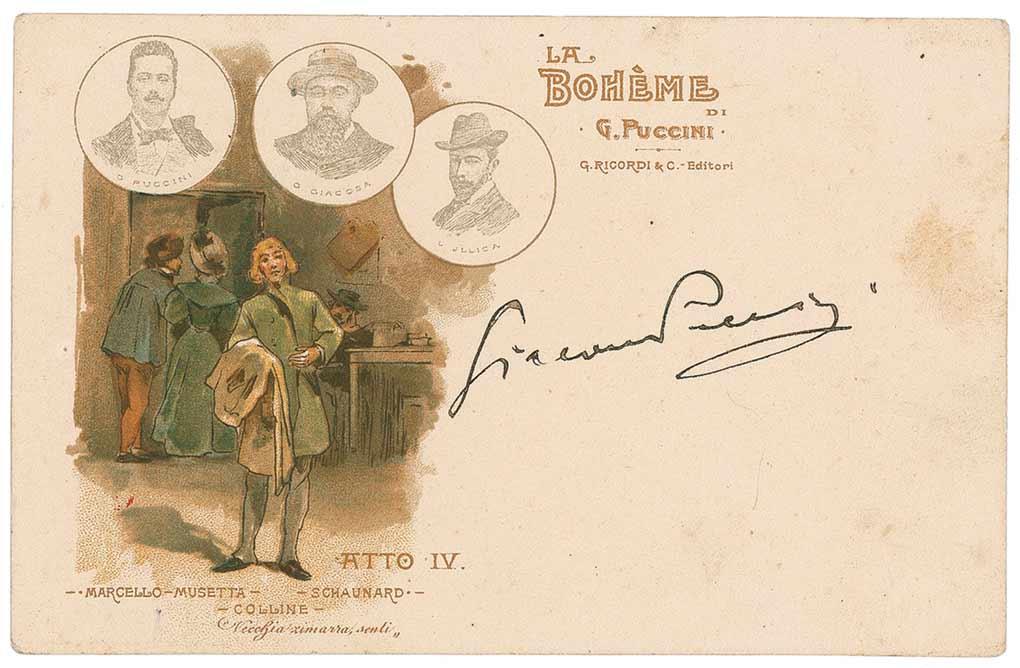 G. PUCCINI
G. GIACOSA
L. ILLICA
LA
BOHÈME
DI
· G. PUCCINI ·
G. RICORDI & C. - Editori
Giacomo Puccini
ATTO IV.
—·MARCELLO—MUSETTA— —SCHAUNARD·—
—COLLINE—
„Vecchia zimarra, senti„